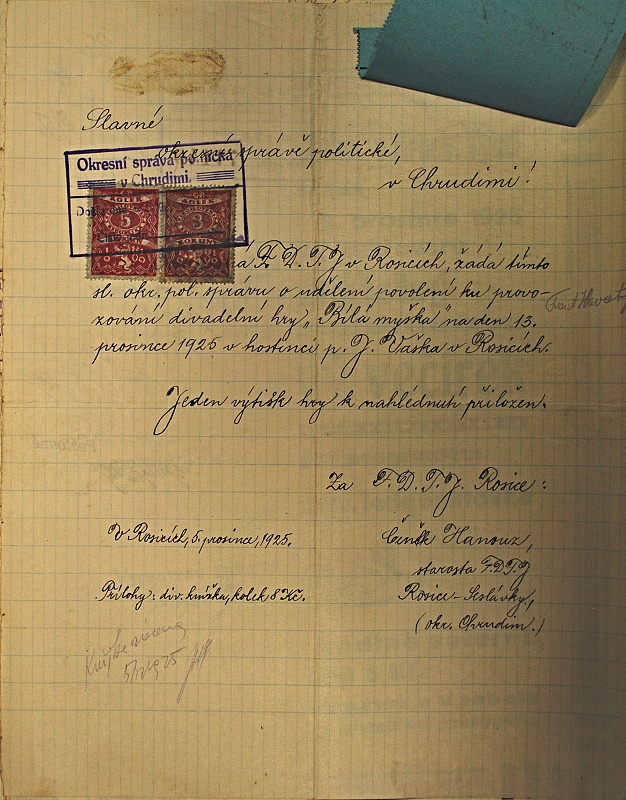 Slavné
okresní správě politické,
v Chrudimi!
Okresní správa politická
v Chrudimi.
KOLEK KOLEK
5 3
F. D. T. J. v Rosicích, žádá tímto
sl. okr. pol. správu o udělení povolení ku provo-
zování divadelní hry „Bílá myška" na den 13.
prosince 1925 v hostinci p. J. Vaška v Rosicích.
Jeden výtisk hry k nahlédnutí přiložen.
Za F. D. T. J. Rosice:
V Rosicích, 5. prosince, 1925.
Hanouz,
starosta F.D.T.J
Rosice-Seslávky,
(okr. Chrudim.)
Přílohy: div. knížka, kolek 8 Kč.